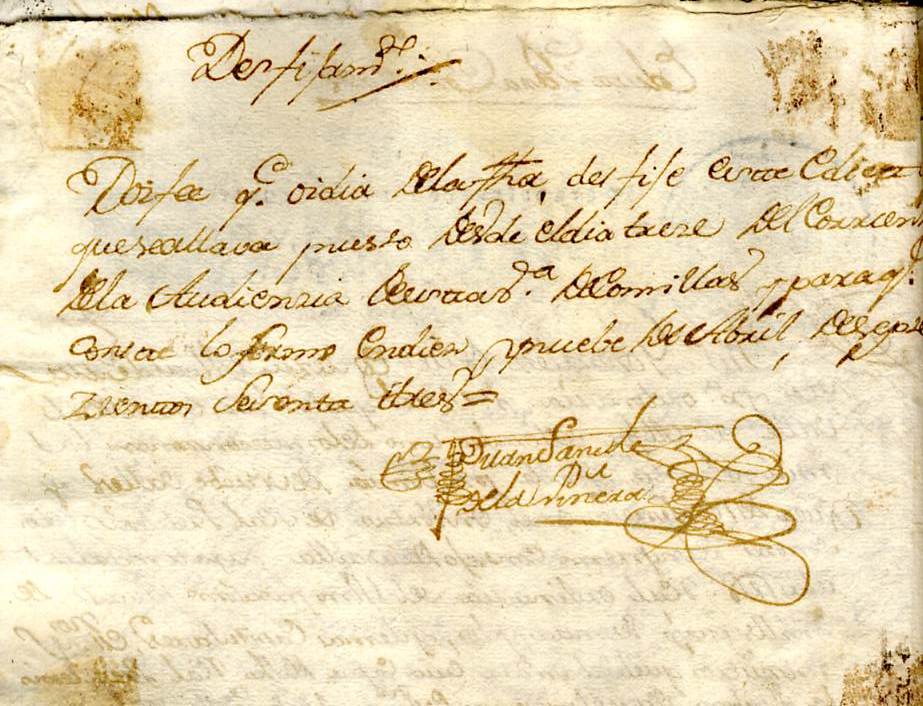 Desfijamto.
Doi fee q.e oi dia de la fha, desfije este Edicto
que se allava puesto desde el dia treze del Corrien
de la Audienzia de esta v.a de Comillas y para q.e
conste lo firmo en diez y nuebe de Abril, de sete
zientos setenta i tres =
Juan Sanchz
de la